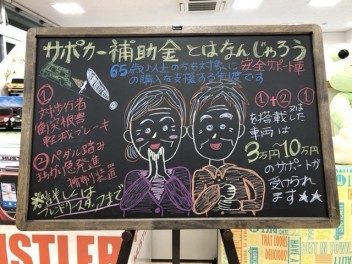 サポカー補助金とはなんじゃろう
65歳以上のち方対象に安全サポート車
の購入を支援する制度です
①
対歩行者
衝突被害
軽減ブレーキ
②ペダル踏み
間違い急発進
抑制装置
※詳しくは
フレキリースタッフまで
①+②又は①
を搭載した
車両は
3万円〜10万円
のサポートが
受けられ
ます★★
USTLER